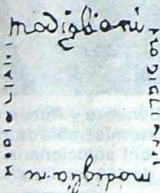 modigliani
MODIGLIANI
MODIGLIANI
modiglia